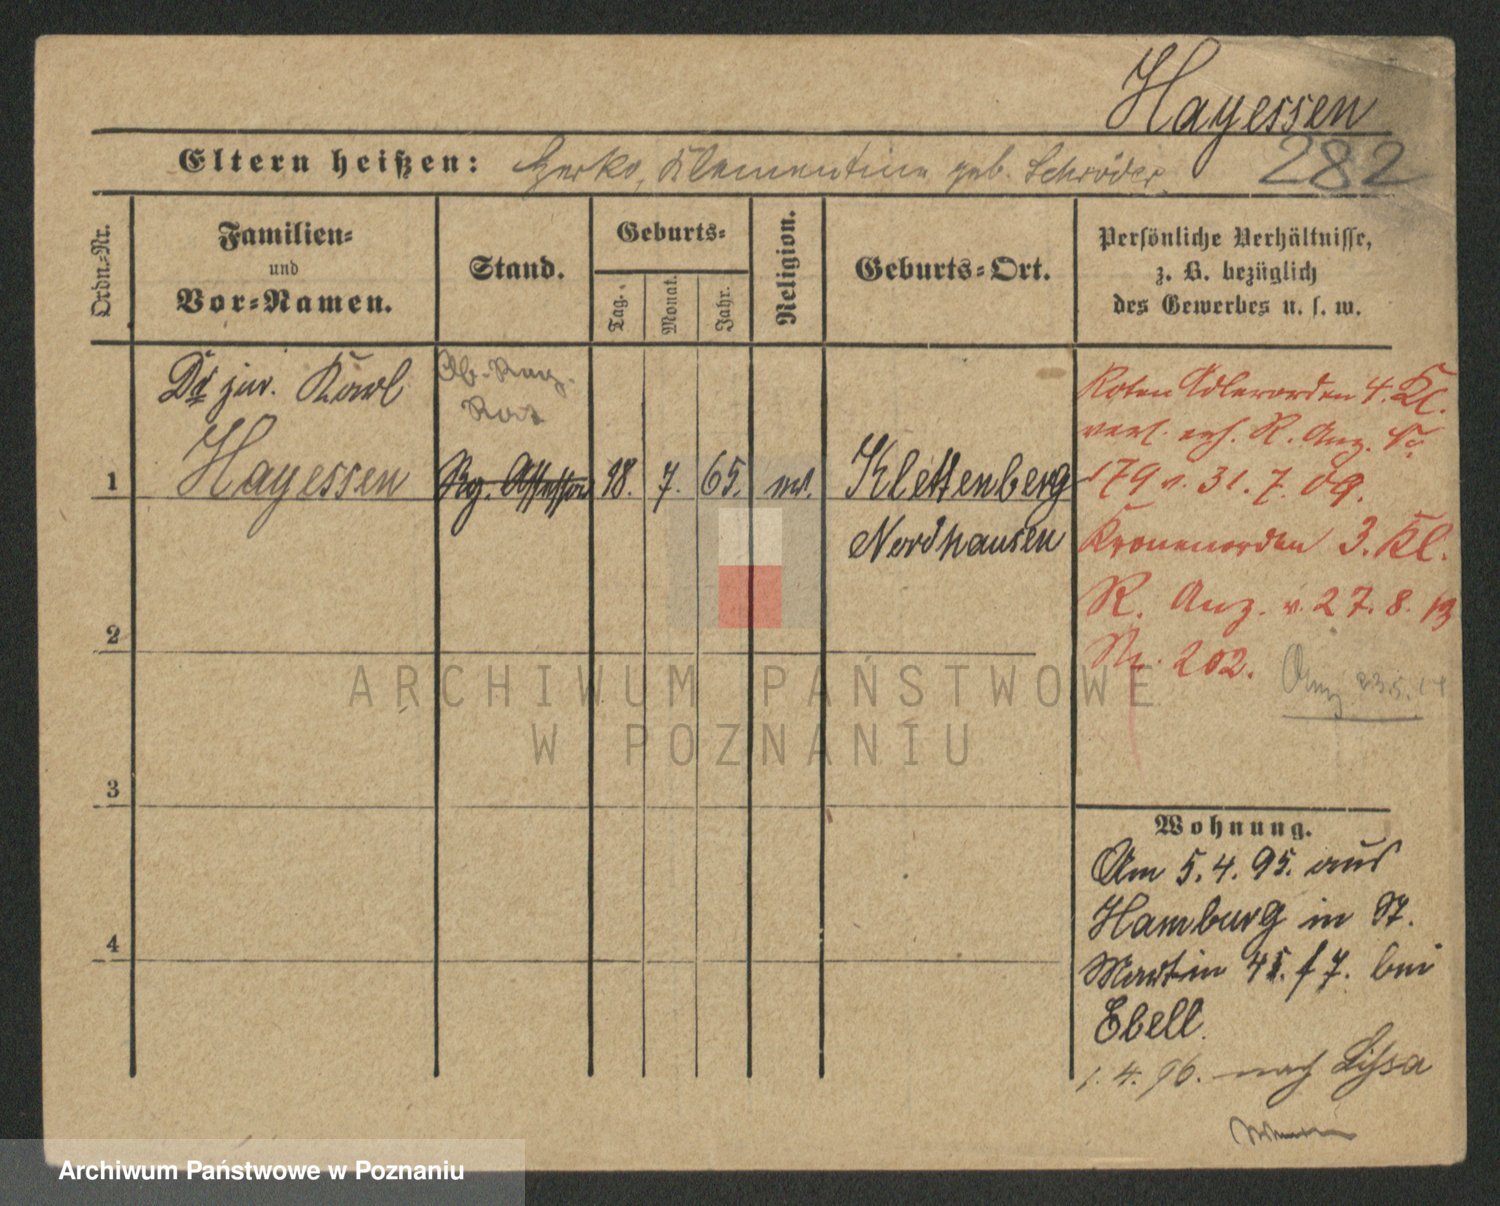 Hayessen
282
Eltern heißen: Gerko, Klementine geb. Schröder
Ordn.-Nr.
Familien-
und
Vor-Namen.
Stand.
Geburts-
Tag.
Monat.
Jahr.
Religion.
Geburts-Ort.
Persönliche Verhältnisse,
z. B. bezüglich
des Gewerbes u. s. w.
Dr jur. Karl
Hayessen
Ob. Reg.
Rat
Rg. Assessor
1
18. 7. 65.
Klettenberg
Nordhausen
Roten Adlerorden 4. Kl.
verl. R. Anz. No
179 v. 31. 7. 09.
Kronenorden 3. Kl.
R. Anz. v. 27. 8. 13
Nr. 202.
2
3
4
Wohnung.
Am 5. 4. 95. aus
Hamburg in St.
Martin 45. 7. bei
Ebell.
1. 4. 96. nach Lissa
ARCHIWUM PAŃSTWOWE
W POZNANIU
Archiwum Państwowe w Poznaniu